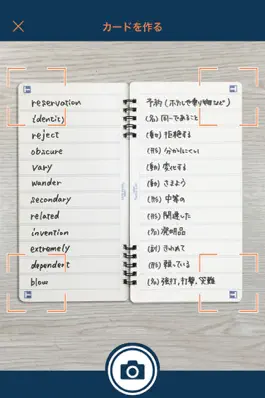 カードを作る
reservation 予約(ホテルや乗り物など)
identity (名)同一であること
reject (動)拒絶する
obscure (形)分かりにくい
vary (動)変化する
wander (動)さまよう
secondary (形)中等の
related (形)関連した
invention (名)発明品
extremely (副)きわめて
dependent (形)頼っている
blow (名)強打,打撃,災難